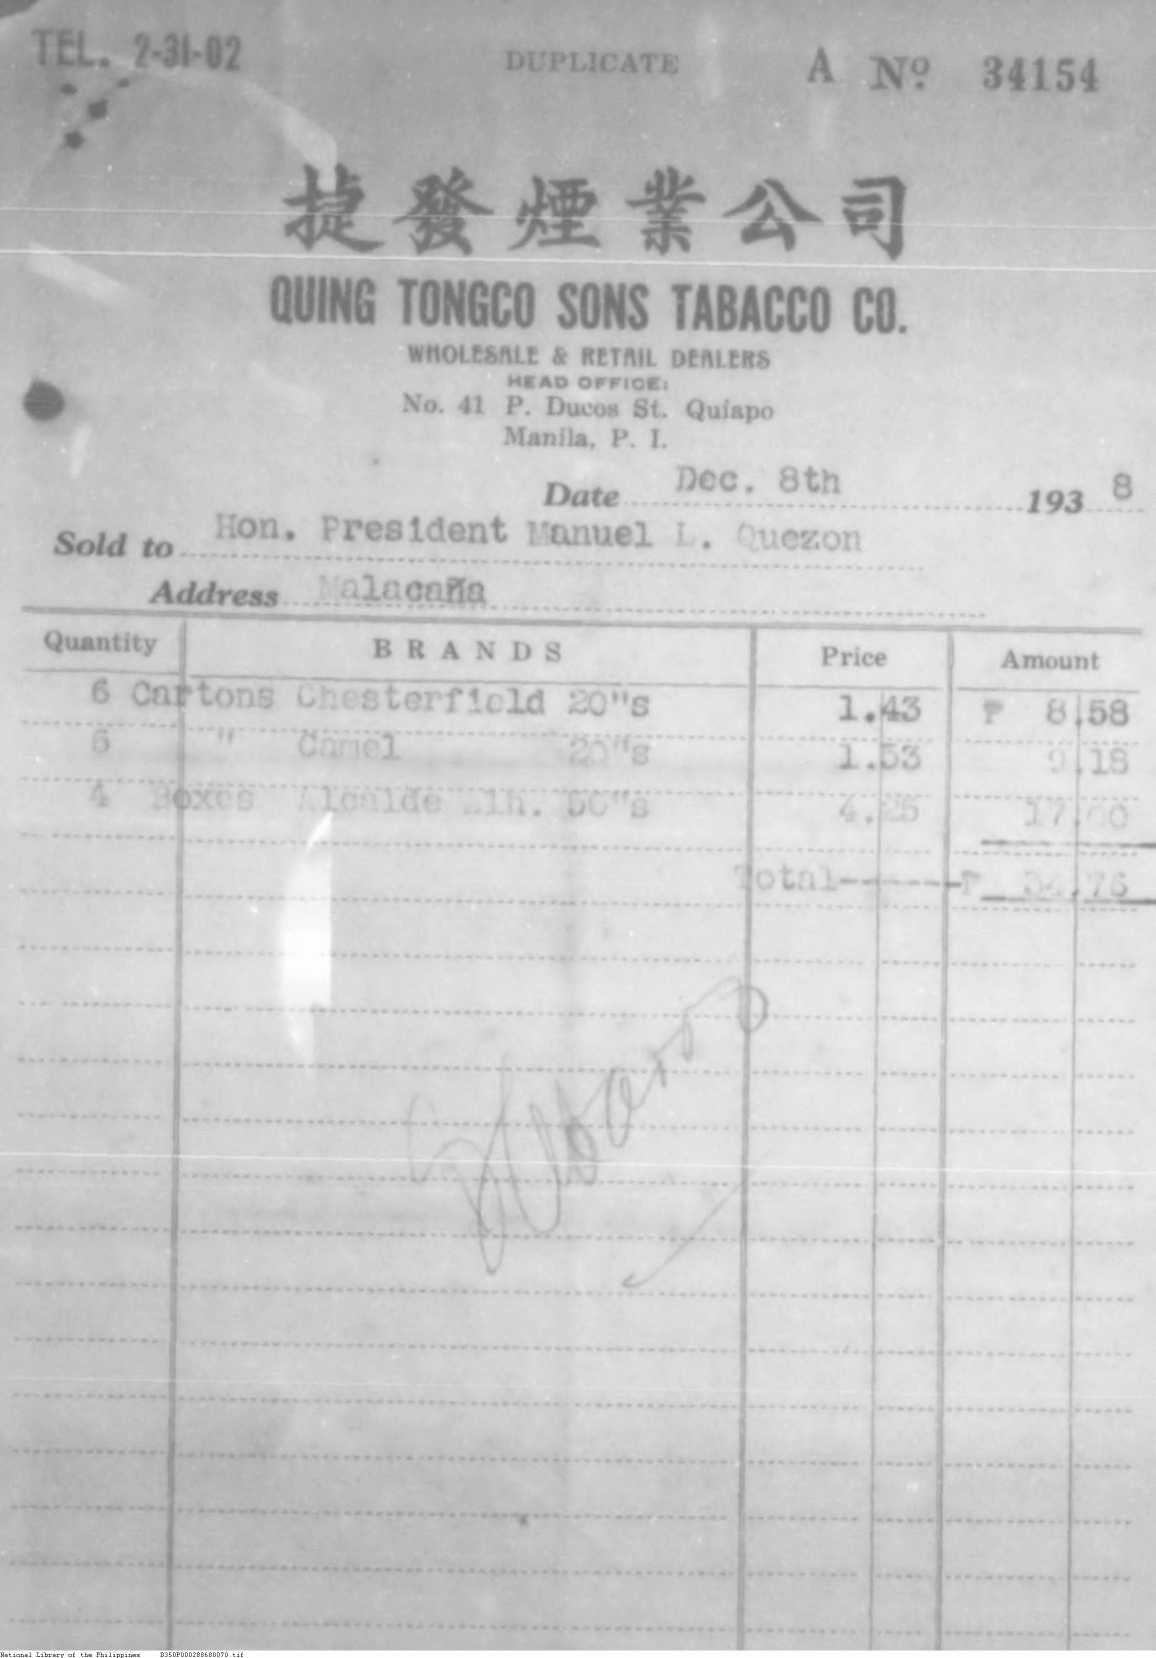 TEL. 2-31-02 DUPLICATE A Nº 34154
捷發煙業公司
QUING TONGCO SONS TABACCO CO.
WHOLESALE & RETAIL DEALERS
HEAD OFFICE:
No. 41 P. Ducos St. Quiapo
Manila, P. I.
Date Dec. 8th 193 8
Sold to Hon. President Manuel L. Quezon
Address Malacaña
Quantity BRANDS Price Amount
6 Cartons Chesterfield 20"s 1.43 ₱ 8.58
6 " Camel 20"s 1.53 9.18
4 Boxes Alcalde 50"s 4.25 17.00
Total------₱ 34.76
National Library of the Philippines D350P000288680070.tif